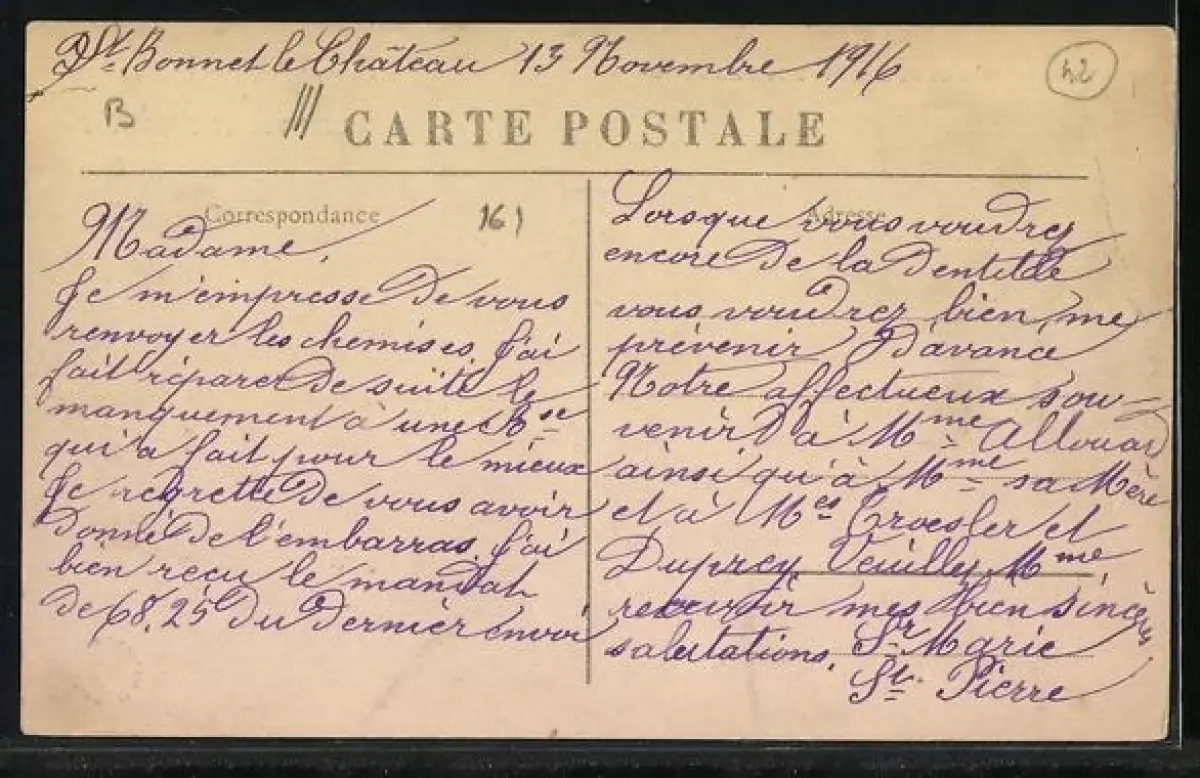 St Bonnet le Château 13 Novembre 1916
42
B
CARTE POSTALE
Correspondance
161
Madame,
Je m'empresse de vous
renvoyer les chemises, j'ai
fait réparer de suite le
manquement à une Bse
qui a fait pour le mieux
Je regrette de vous avoir
donné de l'embarras. J'ai
bien reçu le mandat
de 68,25 du dernier envoi
Adresse
Lorsque vous voudrez
encore de la dentelle
vous voudrez bien me
prévenir d'avance
Notre affectueux sou-
venir à Mme Allouard
ainsi qu'à Mme sa Mère
et à Mes Troesler et
Duprey Veuilley Mme
recevoir mes bien sincères
salutations. Sr Marie
St. Pierre